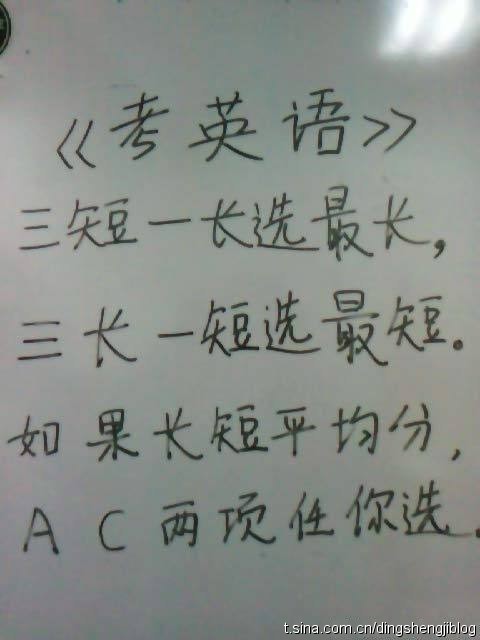 《考英语》
三短一长选最长，
三长一短选最短。
如果长短平均分，
A C 两项任你选.
t.sina.com.cn/dingshengjiblog